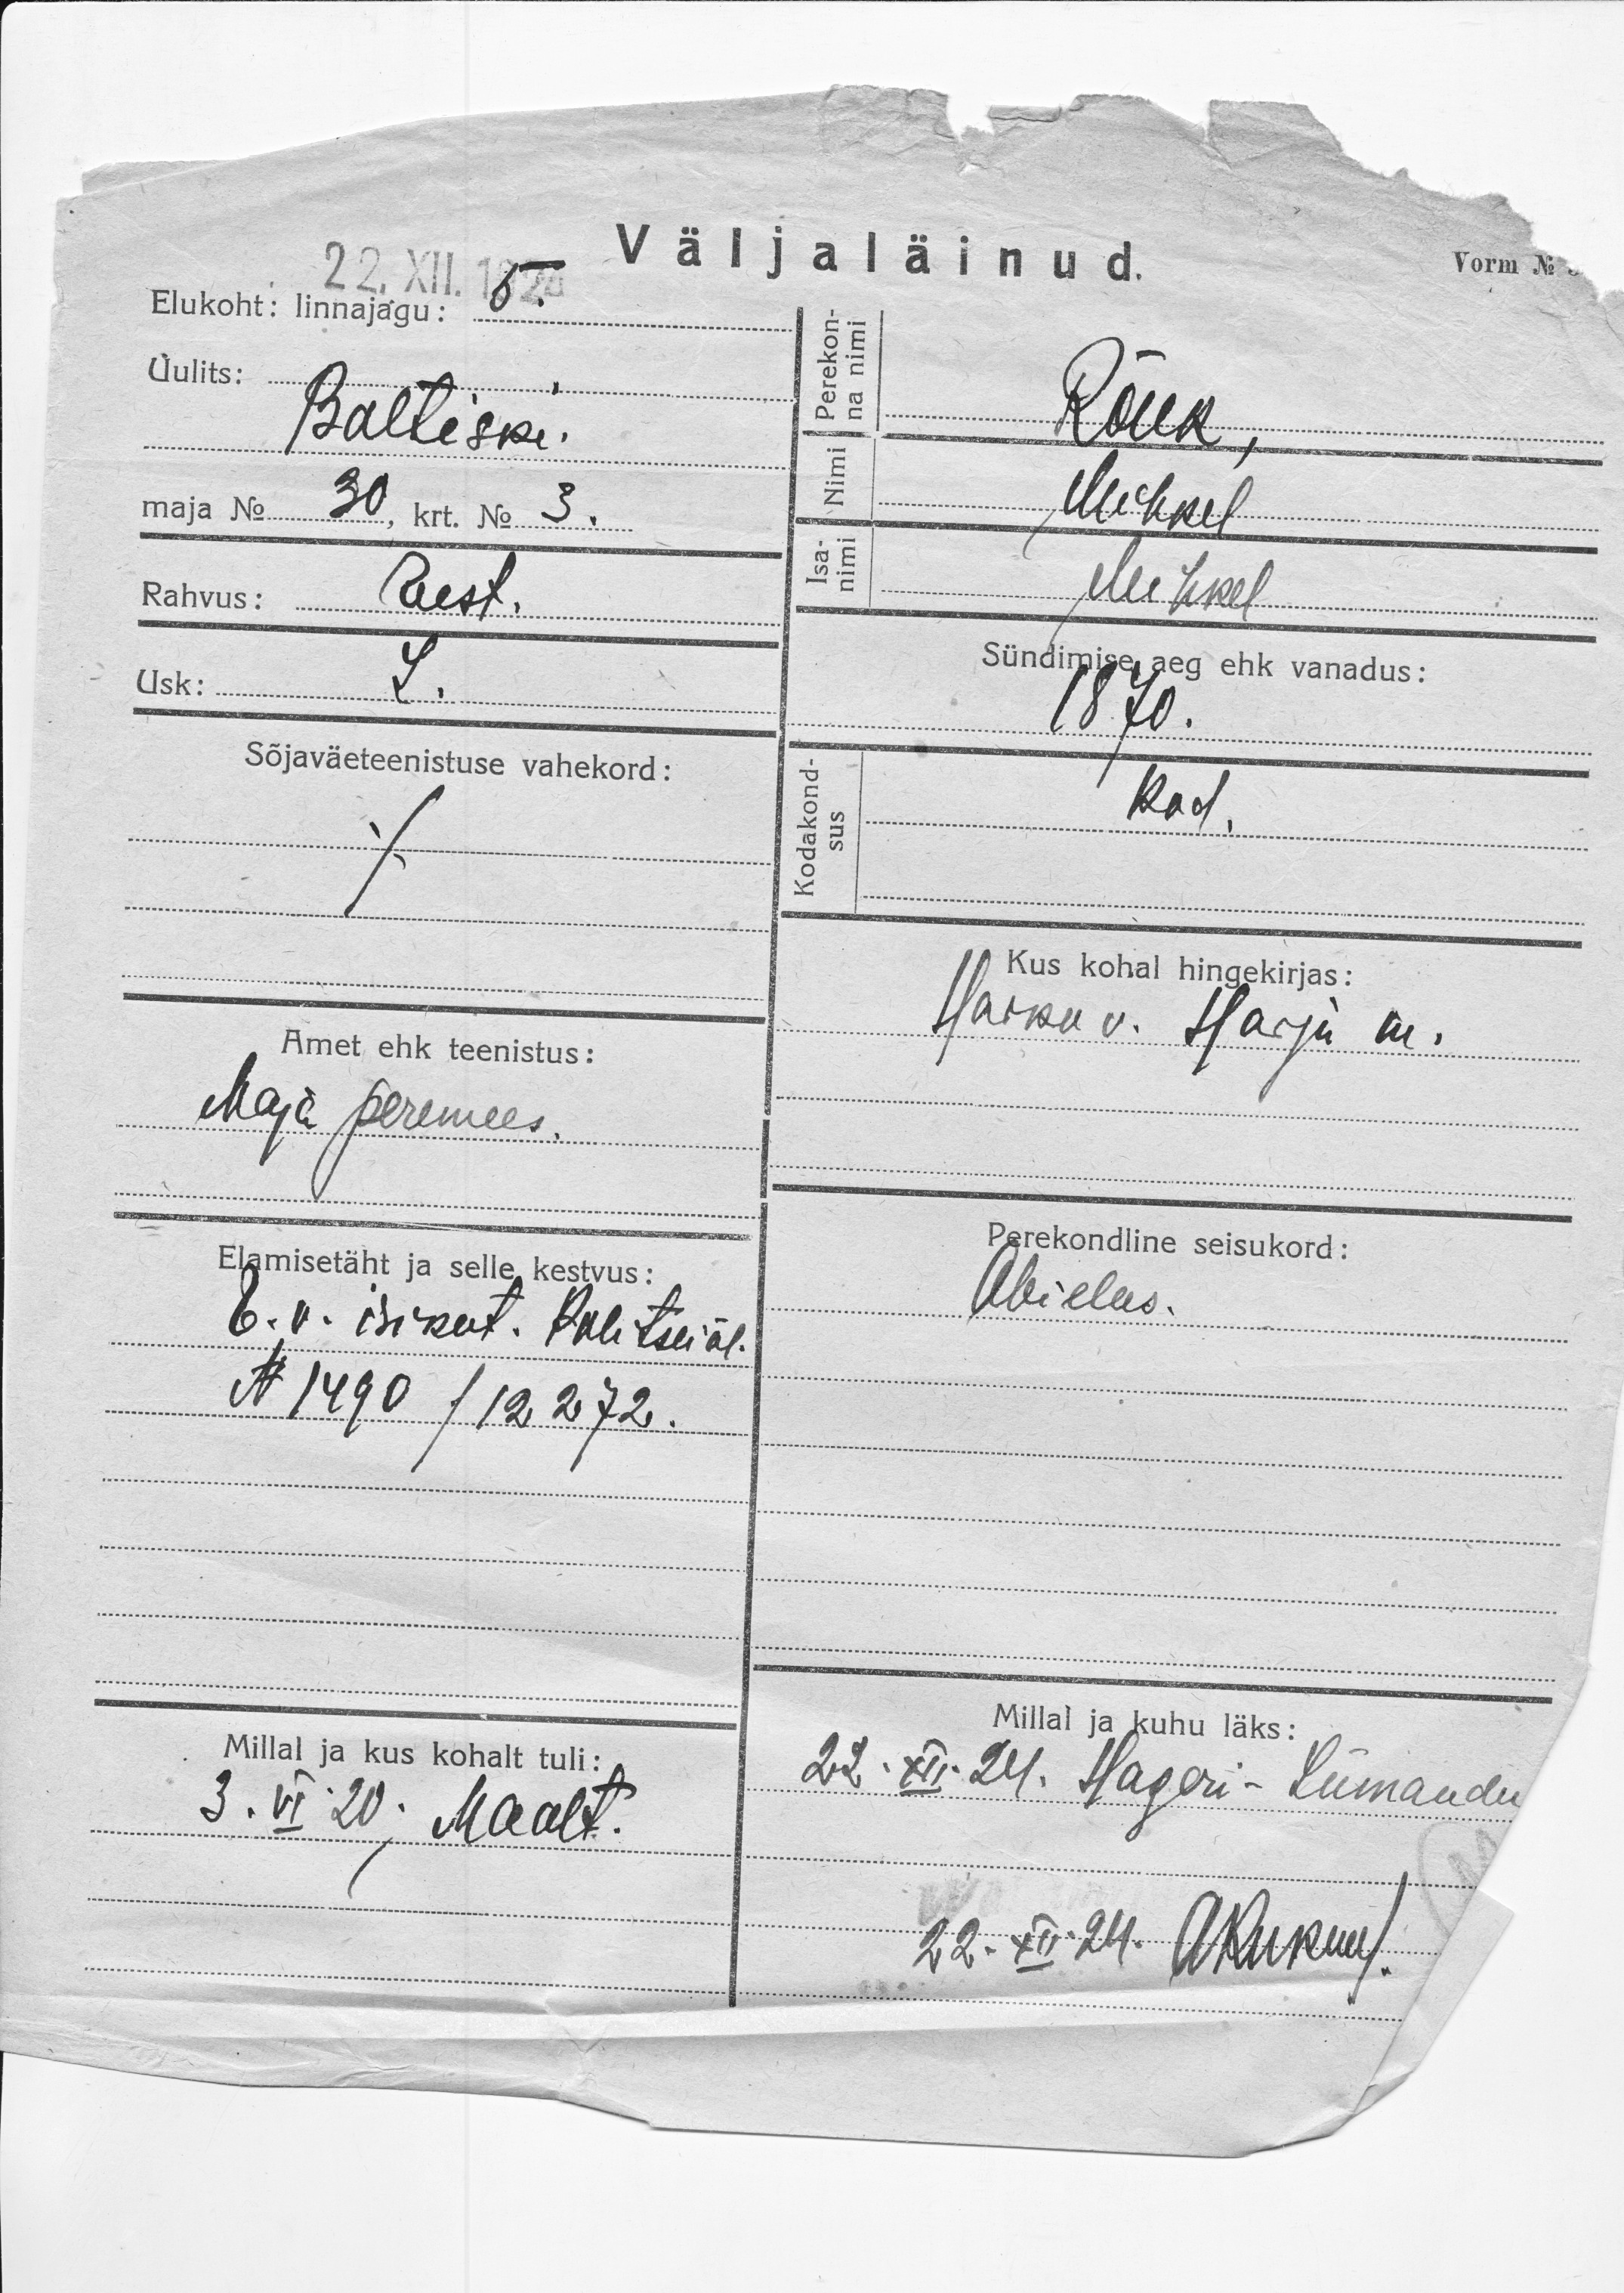 Väljaläinud.
Vorm №
22. XII. 1924
Elukoht: linnajagu: 5.
Uulits:
Baltiski.
maja № 30, krt. № 3.
Rahvus: Eest.
Usk: L.
Sõjaväeteenistuse vahekord:
Amet ehk teenistus:
Maja peremees.
Elamisetäht ja selle kestvus:
E. v. isikut. Politsei öl.
№ 1490 / 12272.
Millal ja kus kohalt tuli:
3. VI 20. Maalt.
Perekon-
na nimi
Rõuk,
Nimi Mihkel
Isa-
nimi
Mihkel
Sündimise aeg ehk vanadus:
1870.
Kodakond-
sus
kod.
Kus kohal hingekirjas:
Harku v. Harju m.
Perekondline seisukord:
Abielus.
Millal ja kuhu läks:
22. XII. 24. Hageri-
22. XII. 24.